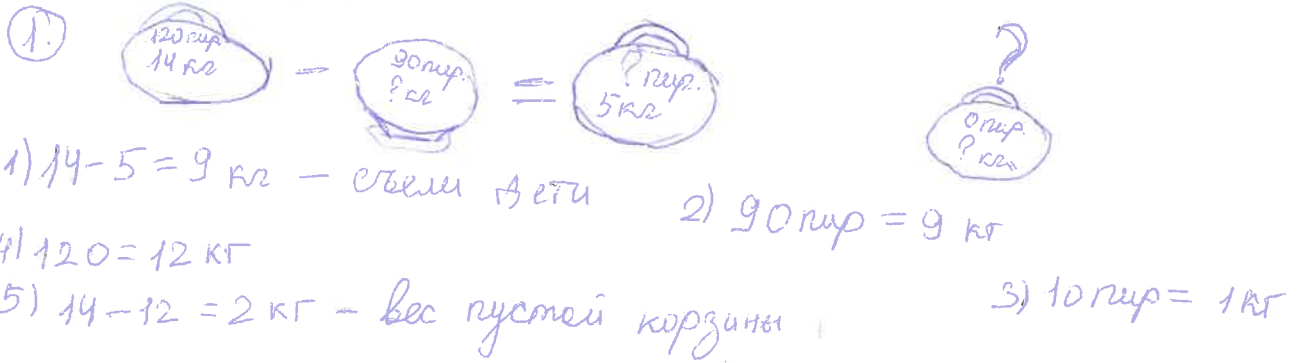 1.
120 пир. 14 кг – 90 пир. ? кг = ? пир. 5 кг
?
0 пир. ? кг.
1) 14 – 5 = 9 кг – съели дети
2) 90 пир = 9 кг
3) 10 пир = 1 кг
4) 120 = 12 кг
5) 14 – 12 = 2 кг – вес пустой корзины